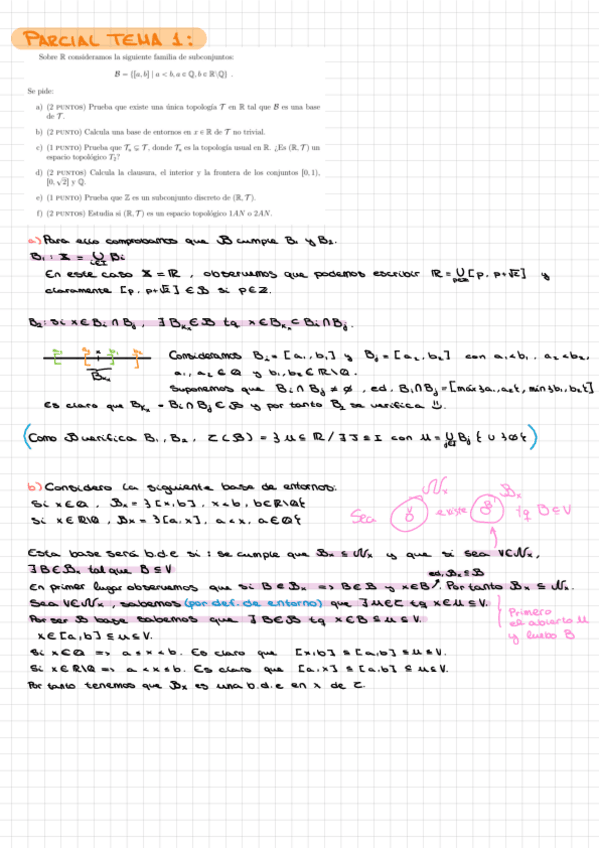 PARCIAL TEMA 1:
Sobre ℝ consideramos la siguiente familia de subconjuntos:
ℬ = {[a, b] | a < b, a ∈ ℚ, b ∈ ℝ\ℚ} .
Se pide:
a) (2 PUNTOS) Prueba que existe una única topología 𝒯 en ℝ tal que ℬ es una base
de 𝒯.
b) (2 PUNTO) Calcula una base de entornos en x ∈ ℝ de 𝒯 no trivial.
c) (1 PUNTO) Prueba que 𝒯ᵤ ⊊ 𝒯, donde 𝒯ᵤ es la topología usual en ℝ. ¿Es (ℝ, 𝒯) un
espacio topológico T₂?
d) (2 PUNTOS) Calcula la clausura, el interior y la frontera de los conjuntos [0, 1),
[0, √2] y ℚ.
e) (1 PUNTO) Prueba que ℤ es un subconjunto discreto de (ℝ, 𝒯).
f) (2 PUNTOS) Estudia si (ℝ, 𝒯) es un espacio topológico 1AN o 2AN.
a) Para ello comprobamos que ℬ cumple B₁ y B₂.
B₁: X = ∪ Bi
i∈I
En este caso X = ℝ, observamos que podemos escribir ℝ = ∪ [p, p+√2] y
p∈ℤ
claramente [p, p+√2] ∈ ℬ si p∈ℤ.
B₂: Si x∈Bi∩Bj, ∃ Bₓ∈ℬ tq x∈Bₓ⊂Bi∩Bj.
Consideramos Bi = [a₁, b₁] y Bj = [a₂, b₂] con a₁<b₁, a₂<b₂,
a₁, a₂ ∈ ℚ y b₁, b₂ ∈ ℝ\ℚ.
Suponemos que Bi∩Bj ≠ ∅, ed, Bi∩Bj = [máx{a₁,a₂}, mín{b₁,b₂}]
Es claro que Bₓ = Bi∩Bj ∈ ℬ y por tanto B₂ se verifica
(Como ℬ verifica B₁, B₂, τ(ℬ) = {U ⊆ ℝ / ∃ J ⊆ I con U = ∪ Bj} ∪ {∅})
j∈J
b) Considero la siguiente base de entornos:
Si x∈ℚ, ℬₓ = {[x,b], x<b, b∈ℝ\ℚ}
Si x∈ℝ\ℚ, ℬₓ = {[a,x], a<x, a∈ℚ}
Sea 𝒩ₓ V existe ℬₓ B tq B⊆V
Esta base será b.d.e si: se cumple que ℬₓ ⊆ 𝒩ₓ y que si sea V∈𝒩ₓ,
∃ B∈ℬₓ tal que B ⊆ V
ed, ℬₓ⊆ℬ
En primer lugar observemos que si B∈ℬₓ => B∈ℬ y x∈B. Por tanto ℬₓ ⊆ 𝒩ₓ.
Sea V∈𝒩ₓ, sabemos (por def. de entorno) que ∃ U∈τ tq x∈U⊆V.
Por ser ℬ base sabemos que ∃ B∈ℬ tq x∈B⊆U⊆V.
Primero
el abierto U
y luego B
x∈[a,b]⊆U⊆V.
Si x∈ℚ => a≤x<b. Es claro que [x,b] ⊆ [a,b] ⊆ U⊆V.
Si x∈ℝ\ℚ => a<x≤b. Es claro que [a,x] ⊆ [a,b] ⊆ U⊆V.
Por tanto tenemos que ℬₓ es una b.d.e en x de τ.